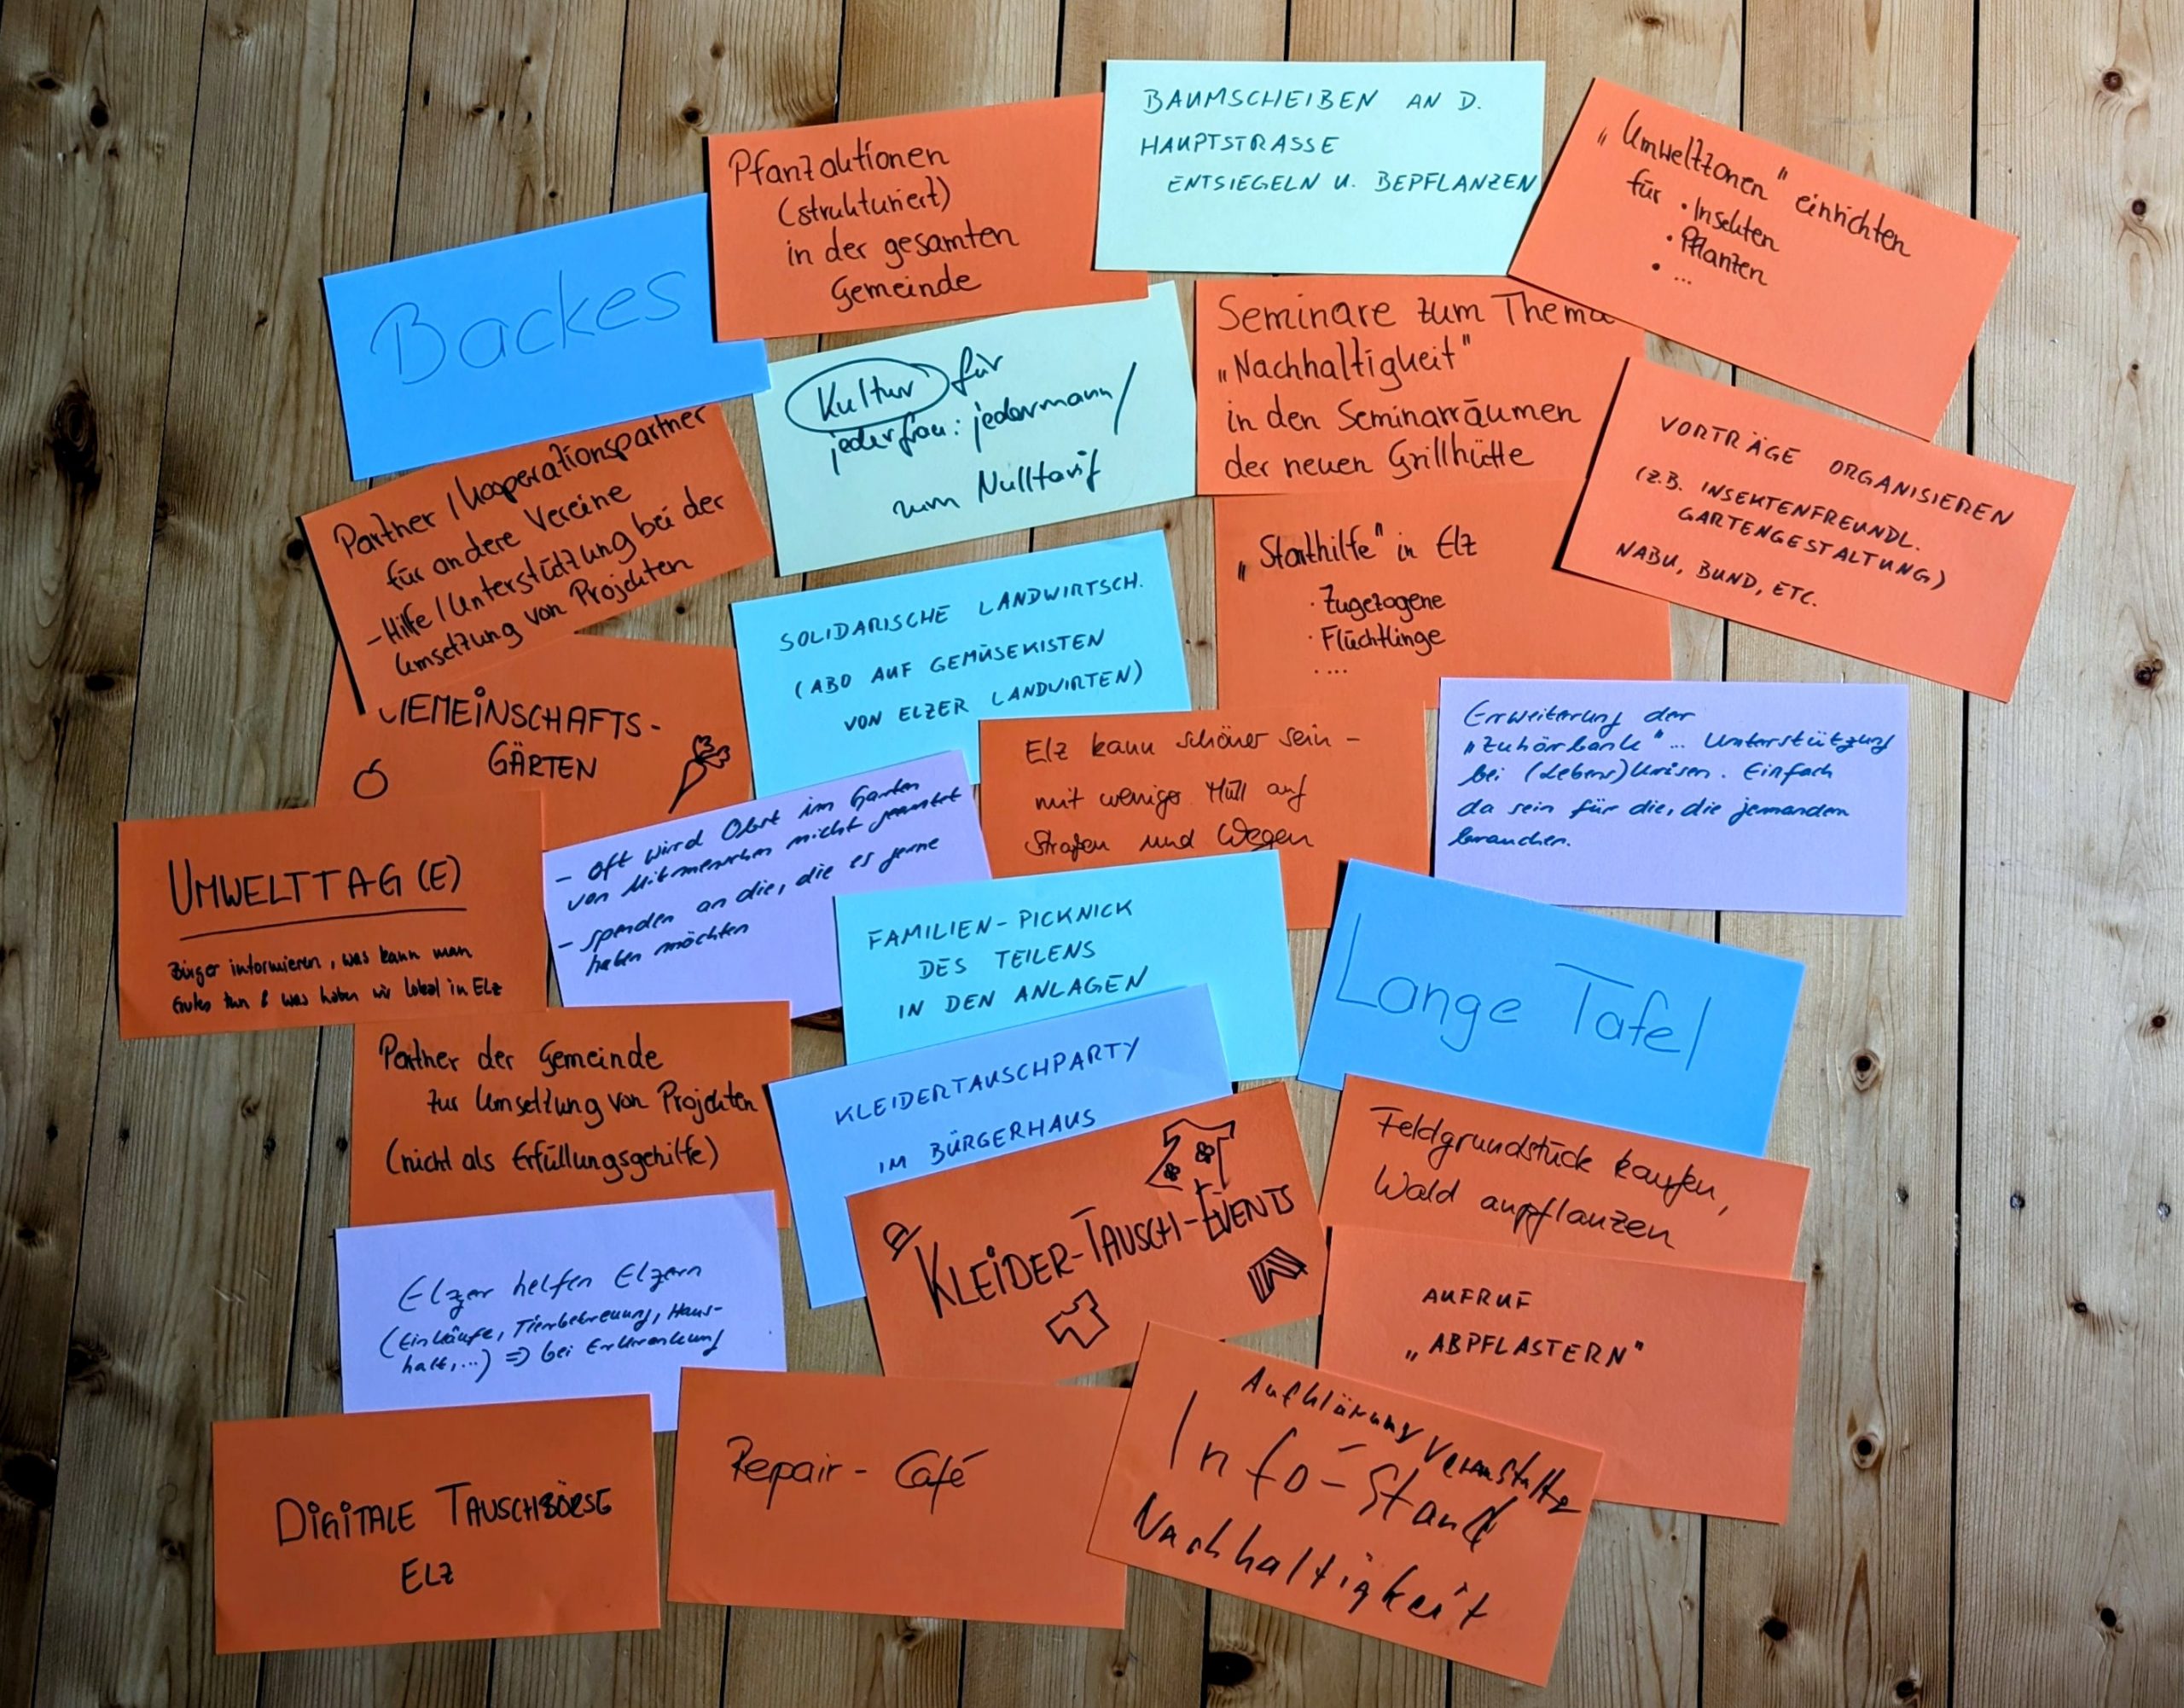 BAUMSCHEIBEN AN D.
HAUPTSTRASSE
ENTSIEGELN U. BEPFLANZEN
Pfanzaktionen
(strukturiert)
in der gesamten
Gemeinde
„Umweltzonen" einrichten
für • Insekten
• Pflanzen
• ...
Backes
Kultur für
jederfrau: jedermann/
zum Nulltarif
Seminare zum Thema
„Nachhaltigkeit"
in den Seminarräumen
der neuen Grillhütte
VORTRÄGE ORGANISIEREN
(Z.B. INSEKTENFREUNDL.
GARTENGESTALTUNG)
NABU, BUND, ETC.
Partner / Kooperationspartner
für andere Vereine
- Hilfe / Unterstützung bei der
Umsetzung von Projekten
„Starthilfe" in Elz
· Zugezogene
· Flüchtlinge
· ...
SOLIDARISCHE LANDWIRTSCH.
(ABO AUF GEMÜSEKISTEN
VON ELZER LANDWIRTEN)
GEMEINSCHAFTS-
GÄRTEN
Elz kann schöner sein -
mit weniger Müll auf
Straßen und Wegen
Erweiterung der
"Zuhörbank"... Unterstützung
bei (Lebens)krisen. Einfach
da sein für die, die jemanden
brauchen.
UMWELTTAG(E)
Bürger informieren, was kann man
Gutes tun & was haben wir lokal in Elz
- oft wird Obst im Garten
von Mitmenschen nicht geerntet
- spenden an die, die es gerne
haben möchten
FAMILIEN-PICKNICK
DES TEILENS
IN DEN ANLAGEN
Lange Tafel
Partner der Gemeinde
zur Umsetzung von Projekten
(nicht als Erfüllungsgehilfe)
KLEIDERTAUSCHPARTY
IM BÜRGERHAUS
KLEIDER-TAUSCH-EVENTS
Feldgrundstück kaufen,
Wald anpflanzen
Elzer helfen Elzern
(Einkäufe, Tierbetreuung, Haus-
halt,...) => bei Erkrankung
AUFRUF
„ABPFLASTERN"
DIGITALE TAUSCHBÖRSE
ELZ
Repair-Café
Aufklärung
Info-Stand
Nachhaltigkeit